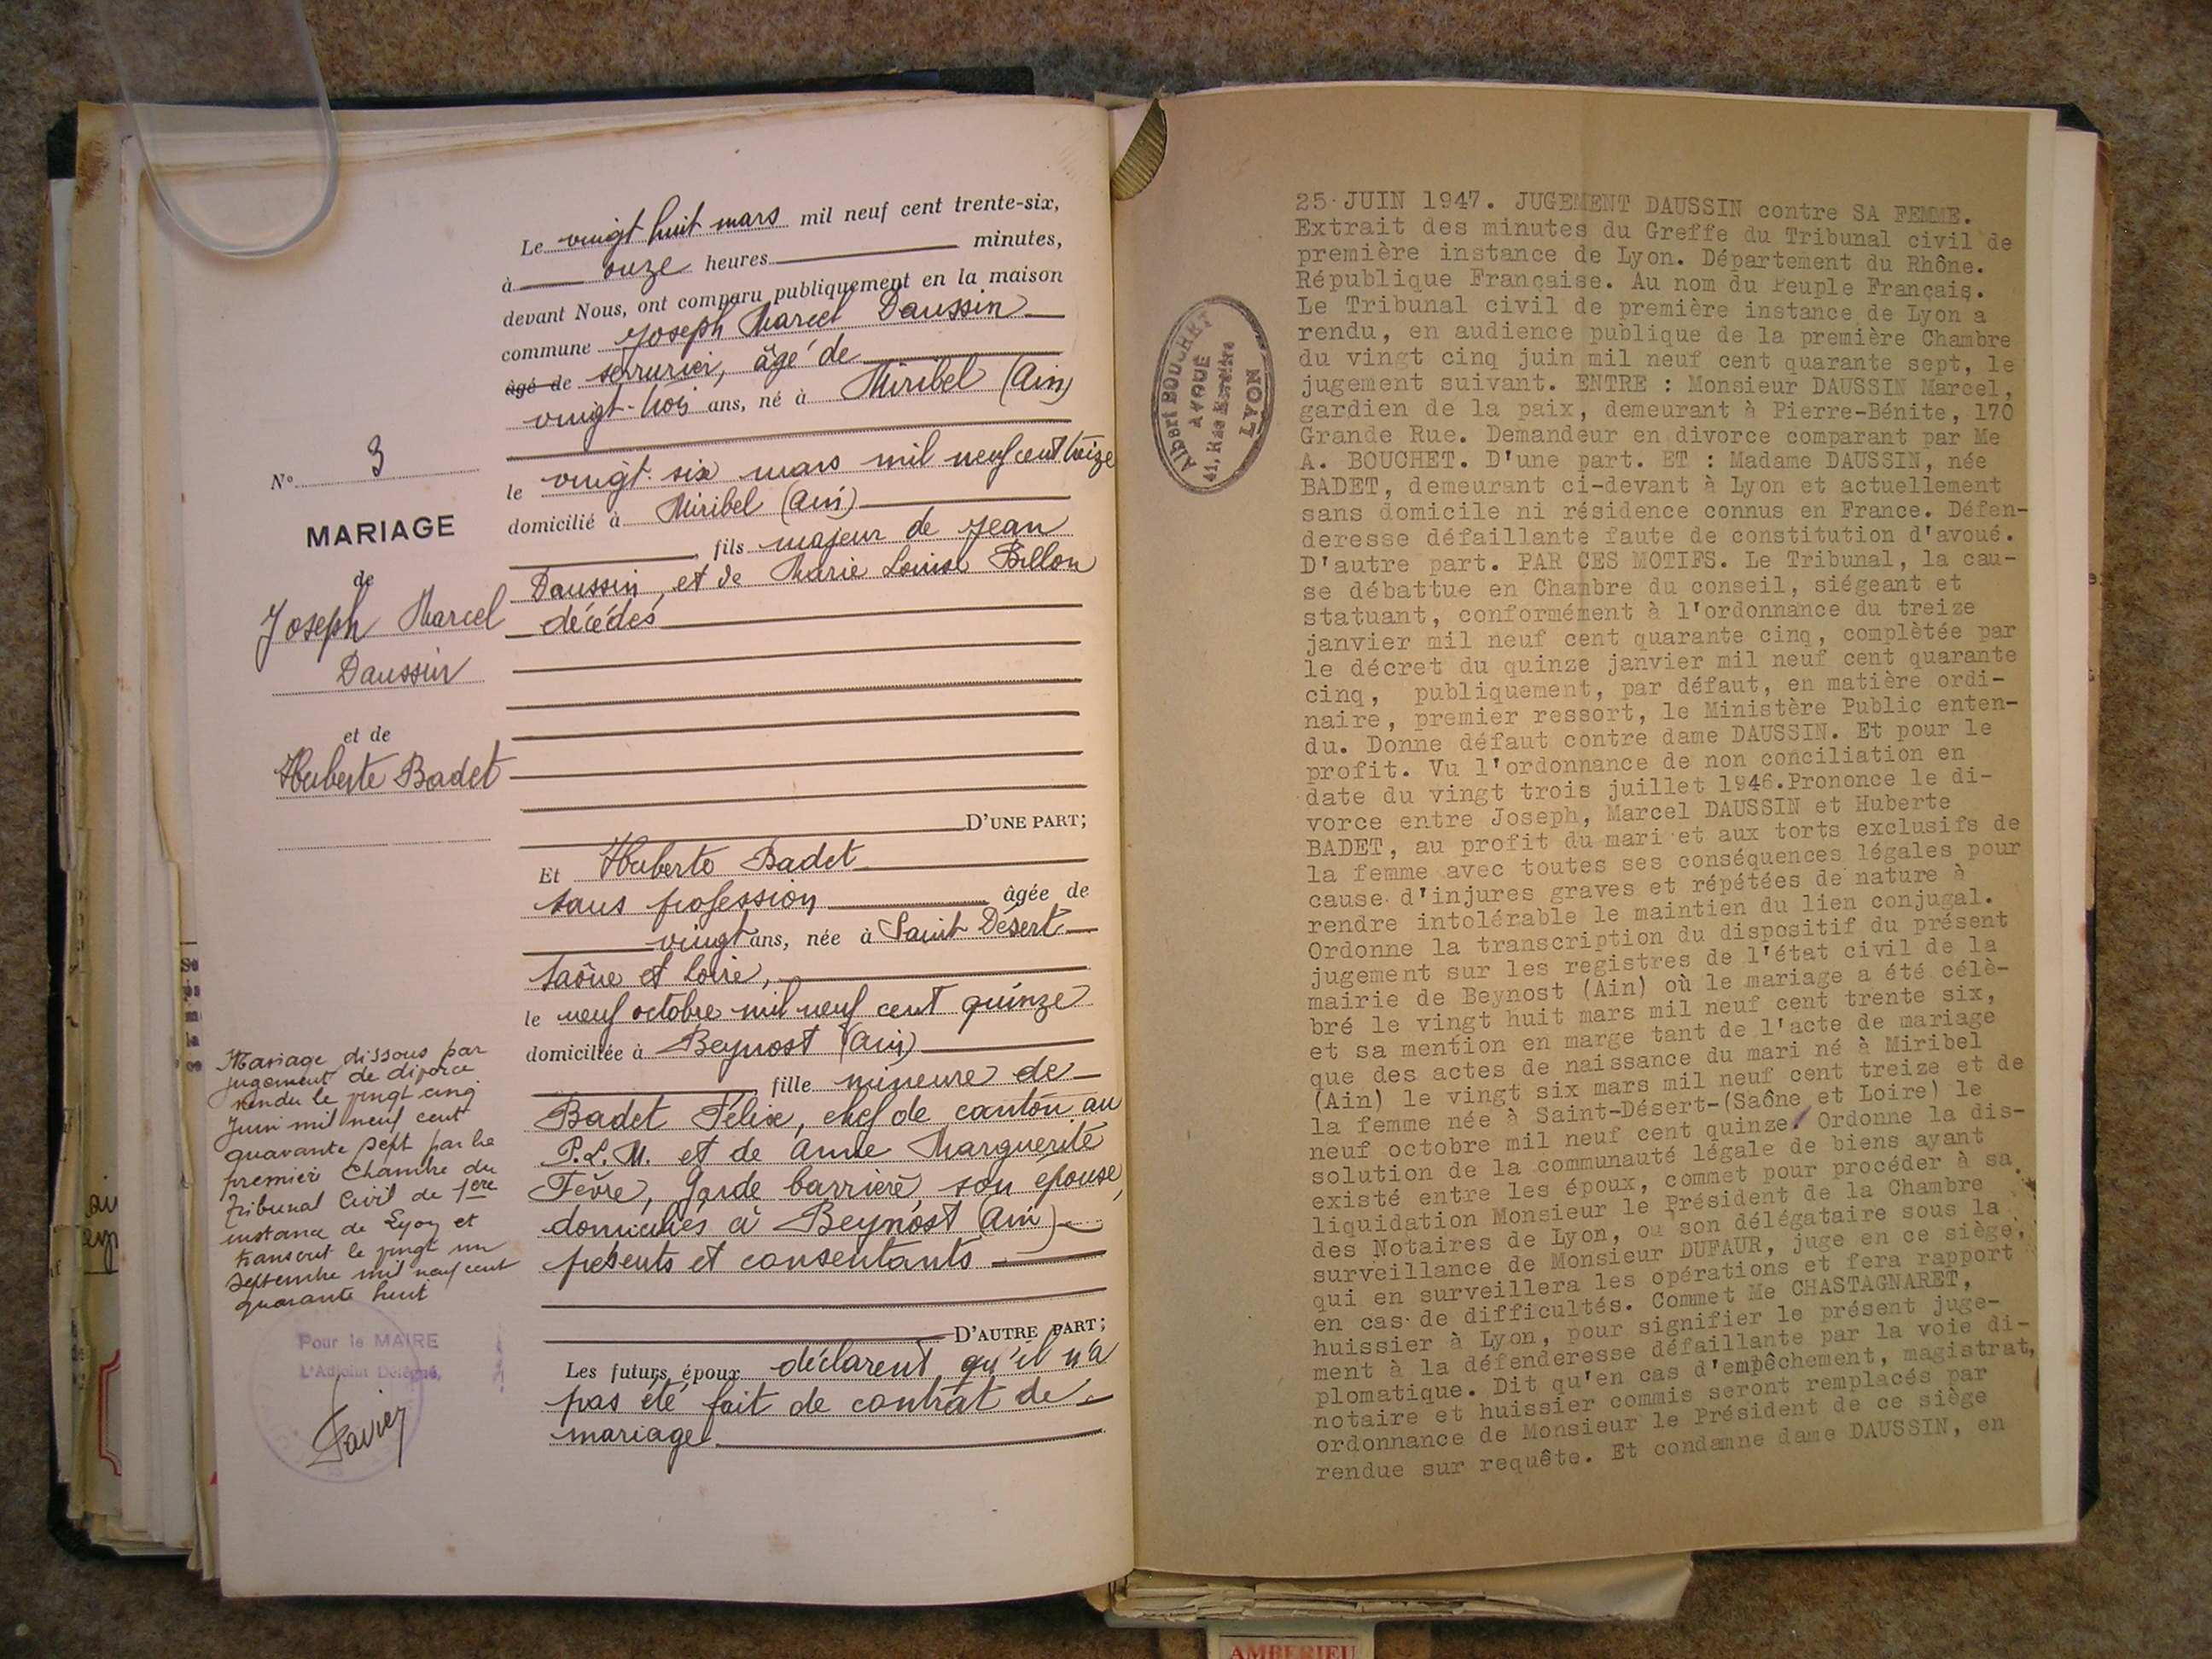 Le vingt huit mars mil neuf cent trente-six,
à onze heures minutes,
devant Nous, ont comparu publiquement en la maison
commune Joseph Marcel Daussin
âgé de serrurier, âgé de
vingt-trois ans, né à Miribel (Ain)
le vingt-six mars mil neuf cent treize
domicilié à Miribel (Ain)
, fils majeur de Jean
Daussin, et de Marie Louise Billon
décédés
D'UNE PART;
Et Huberte Badet
sans profession âgée de
vingt ans, née à Saint Désert
Saône et Loire,
le neuf octobre mil neuf cent quinze
domiciliée à Beynost (Ain)
fille mineure de
Badet Félix, chef de canton au
P.L.M. et de Anne Marguerite
Fèvre, garde barrière, son épouse,
domiciliés à Beynost (Ain)
présents et consentants
D'AUTRE PART;
Les futurs époux déclarent qu'il n'a
pas été fait de contrat de
mariage
N° 3
MARIAGE
de
Joseph Marcel
Daussin
et de
Huberte Badet
Mariage dissous par
jugement de divorce
rendu le vingt cinq
Juin mil neuf cent
quarante sept par la
première Chambre du
Tribunal Civil de 1ère
instance de Lyon et
transcrit le vingt un
septembre mil neuf cent
quarante huit
Pour le MAIRE
L'Adjoint Délégué,
Albert BOUCHET
AVOUÉ
41, Rue
LYON
25 JUIN 1947. JUGEMENT DAUSSIN contre SA FEMME.
Extrait des minutes du Greffe du Tribunal civil de
première instance de Lyon. Département du Rhône.
République Française. Au nom du Peuple Français.
Le Tribunal civil de première instance de Lyon a
rendu, en audience publique de la première Chambre
du vingt cinq juin mil neuf cent quarante sept, le
jugement suivant. ENTRE : Monsieur DAUSSIN Marcel,
gardien de la paix, demeurant à Pierre-Bénite, 170
Grande Rue. Demandeur en divorce comparant par Me
A. BOUCHET. D'une part. ET : Madame DAUSSIN, née
BADET, demeurant ci-devant à Lyon et actuellement
sans domicile ni résidence connus en France. Défen-
deresse défaillante faute de constitution d'avoué.
D'autre part. PAR CES MOTIFS. Le Tribunal, la cau-
se débattue en Chambre du conseil, siégeant et
statuant, conformément à l'ordonnance du treize
janvier mil neuf cent quarante cinq, complètée par
le décret du quinze janvier mil neuf cent quarante
cinq, publiquement, par défaut, en matière ordi-
naire, premier ressort, le Ministère Public enten-
du. Donne défaut contre dame DAUSSIN. Et pour le
profit. Vu l'ordonnance de non conciliation en
date du vingt trois juillet 1946.Prononce le di-
vorce entre Joseph, Marcel DAUSSIN et Huberte
BADET, au profit du mari et aux torts exclusifs de
la femme avec toutes ses conséquences légales pour
cause d'injures graves et répétées de nature à
rendre intolérable le maintien du lien conjugal.
Ordonne la transcription du dispositif du présent
jugement sur les registres de l'état civil de la
mairie de Beynost (Ain) où le mariage a été célè-
bré le vingt huit mars mil neuf cent trente six,
et sa mention en marge tant de l'acte de mariage
que des actes de naissance du mari né à Miribel
(Ain) le vingt six mars mil neuf cent treize et de
la femme née à Saint-Désert-(Saône et Loire) le
neuf octobre mil neuf cent quinze. Ordonne la dis-
solution de la communauté légale de biens ayant
existé entre les époux, commet pour procéder à sa
liquidation Monsieur le Président de la Chambre
des Notaires de Lyon, ou son délégataire sous la
surveillance de Monsieur DUFAUR, juge en ce siège,
qui en surveillera les opérations et fera rapport
en cas de difficultés. Commet Me CHASTAGNARET,
huissier à Lyon, pour signifier le présent juge-
ment à la défenderesse défaillante par la voie di-
plomatique. Dit qu'en cas d'empêchement, magistrat,
notaire et huissier commis seront remplacés par
ordonnance de Monsieur le Président de ce siège
rendue sur requête. Et condamne dame DAUSSIN, en
AMBERIEU